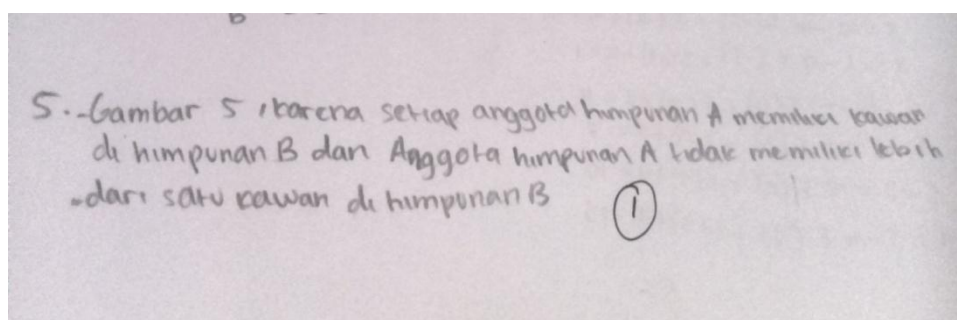 B
5. Gambar 5, karena setiap anggota himpunan A memiliki kawan
di himpunan B dan Anggota himpunan A tidak memiliki lebih
dari satu kawan di himpunan B
1